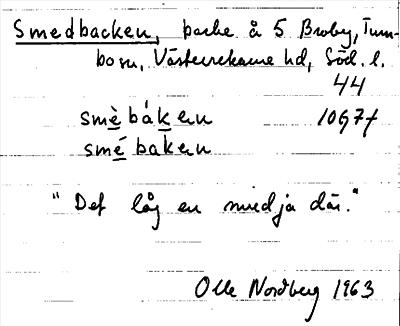 Smedbacken, backe å 5 Broby, Tum-
bo sn, Västerrekarne hd, Söd. l.
44
smè̱ báḵen 10G7f
smé̱ baḵen
"Det låg en smedja där."
Olle Nordberg 1963